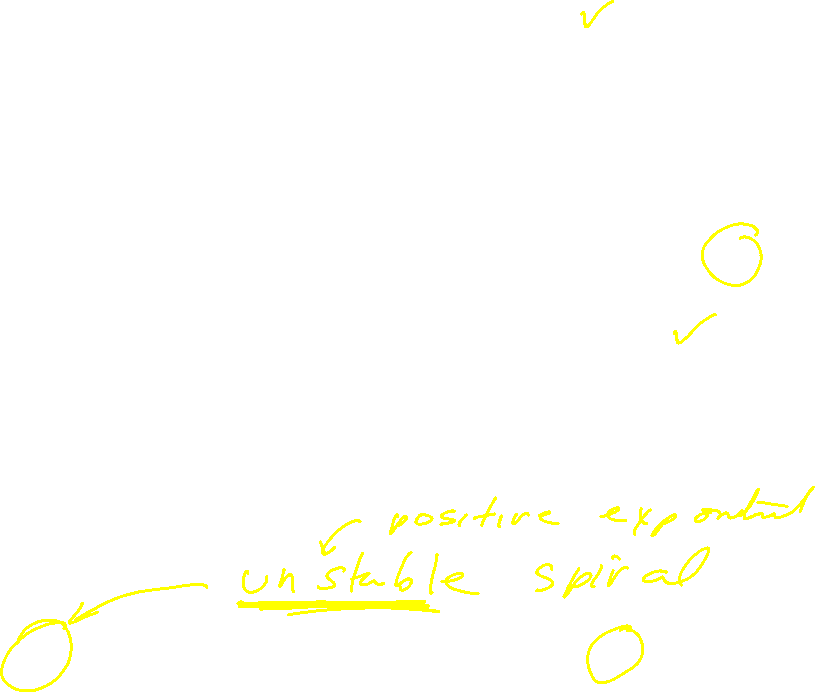 positive exponential
unstable spiral